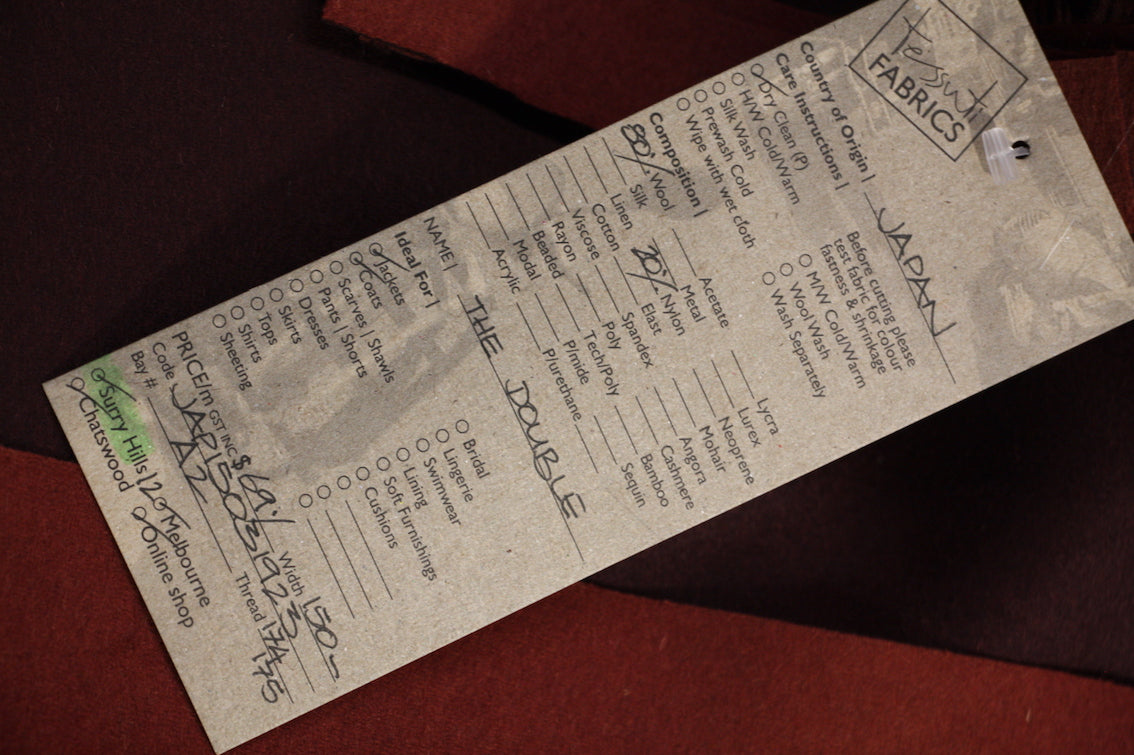 tessuti
FABRICS
Country of Origin | JAPAN
Care Instructions |
Dry Clean (P)
H/W Cold/Warm
Silk Wash
Prewash Cold
Wipe with wet cloth
Before cutting please
test fabric for colour
fastness & shrinkage
M/W Cold/Warm
Wool Wash
Wash Separately
Composition |
80% Wool
Silk
Linen
Cotton
Viscose
Rayon
Beaded
Modal
Acrylic
Acetate
Metal
20% Nylon
Elast
Spandex
Poly
Tech/Poly
P/mide
P/urethane
Lycra
Lurex
Neoprene
Mohair
Angora
Cashmere
Bamboo
Sequin
NAME | THE DOUBLE
Ideal For |
Jackets
Coats
Scarves | Shawls
Pants | Shorts
Dresses
Skirts
Tops
Shirts
Sheeting
Bridal
Lingerie
Swimwear
Lining
Soft Furnishings
Cushions
PRICE/m GST INC $69 Width 150
Code JAP1503/923 Thread 174
175
Bay # A2
Surry Hills | Melbourne
Chatswood Online shop